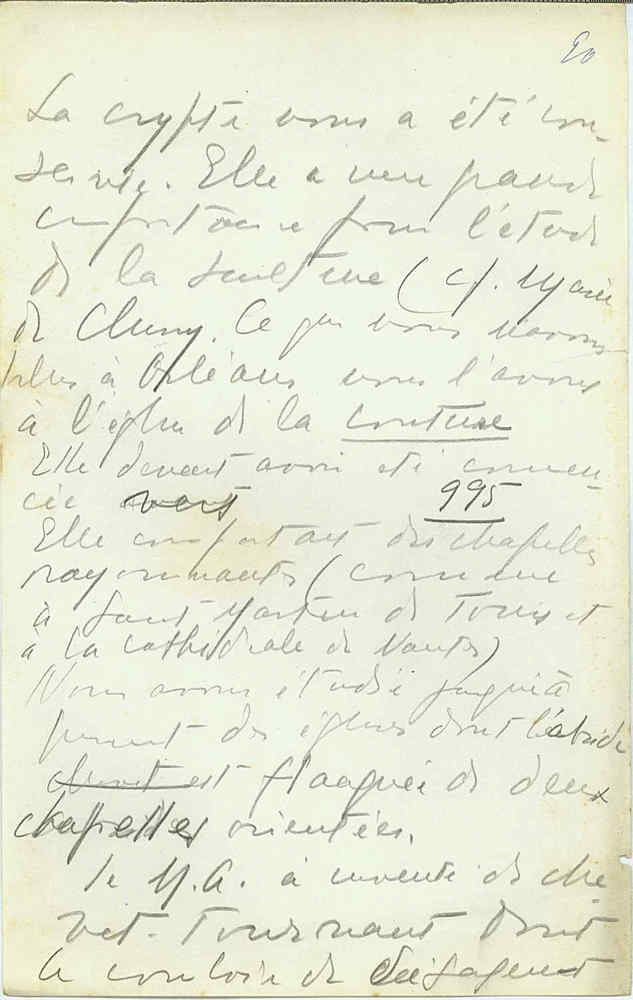 20
La crypte nous a été con-
servée. Elle a une grande
importance pour l'étude
de la sculpture (cf. Marie
de Cluny. Ce que nous n'avons
plus à Orléans nous l'avons
à l'église de la couture
Elle devait avoir été commen-
cée vers 995
Elle comportait des chapelles
rayonnantes (comme
à Saint Martin de Tours et
à la cathédrale de Nantes)
Nous avons étudié jusqu'à
présent des églises dont l'abside
est flanquée de deux
chapelles orientées.
Le M.A. a inventé de che
vet-tournant dont
le couloir de dégagement